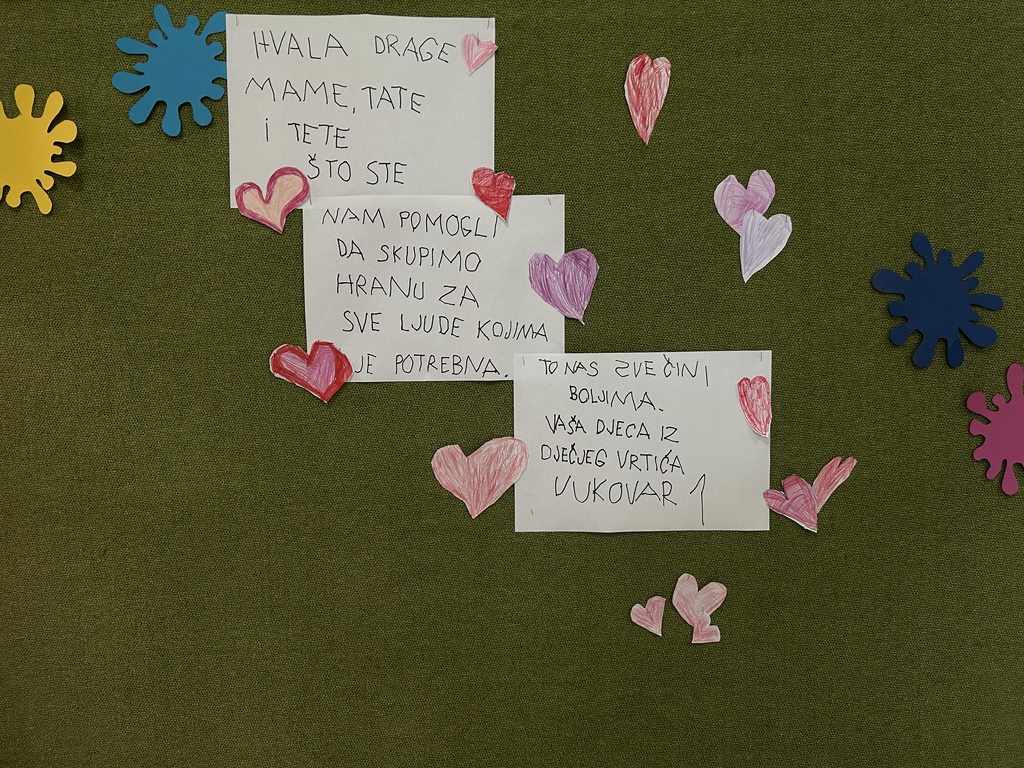 HVALA DRAGE
MAME, TATE
i TETE
ŠTO STE
NAM POMOGLI
DA SKUPIMO
HRANU ZA
SVE LJUDE KOJIMA
JE POTREBNA.
TO NAS SVE ČINI
BOLJIMA.
VAŠA DJECA IZ
DJEČJEG VRTIĆA
VUKOVAR 1